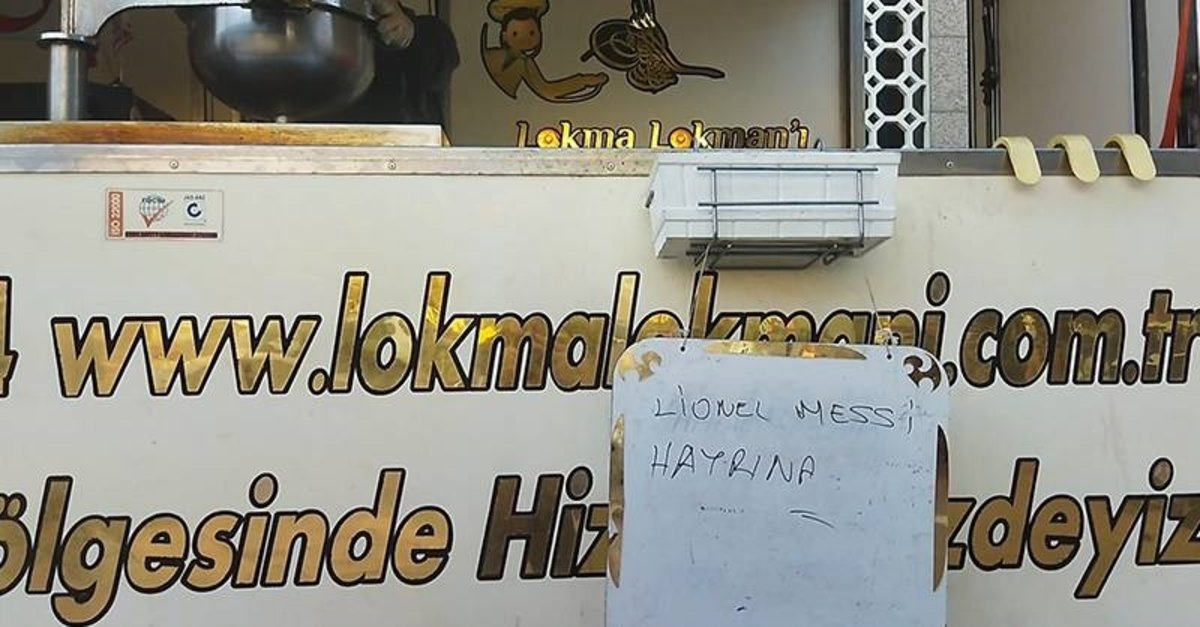 Lokma Lokman'ı
ISO 22000
www.lokmalokmani.com.tr
LİONEL MESSİ
HAYRINA
ölgesinde Hiz zdeyiz